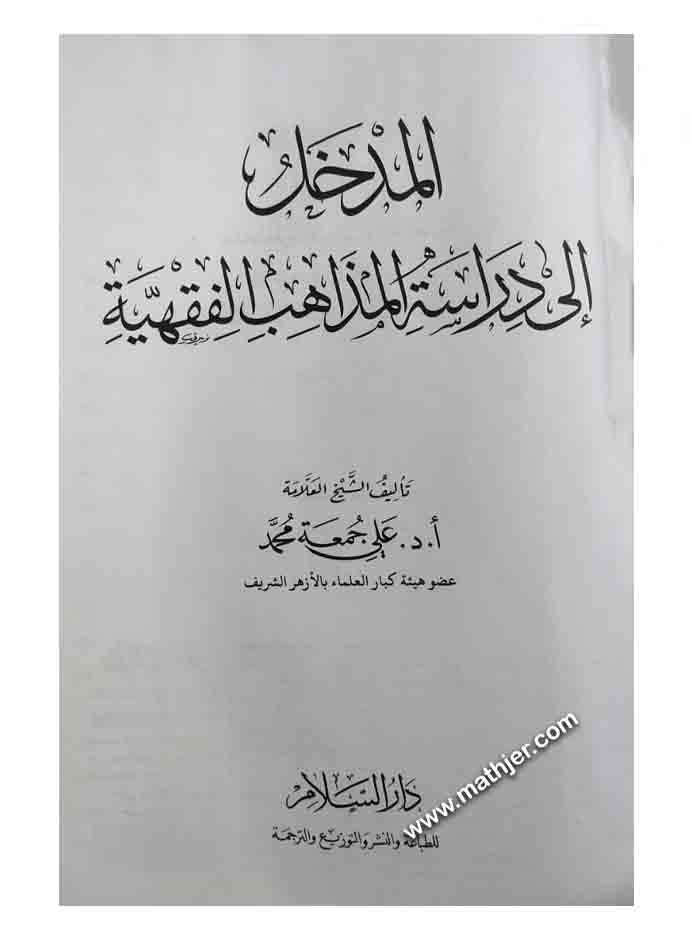 المدْخَلُ
إلى دِرَاسَةِ المذَاهِبِ الفِقْهيَّةِ
تأليفُ الشَّيْخِ العَلَّامَة
أ. د. عَلِي جُمعَة مُحمَّد
عضو هيئة كبار العلماء بالأزهر الشريف
www.mathjer.com
دَارُ السَّلَامِ
للطباعة والنشر والتوزيع والترجمة